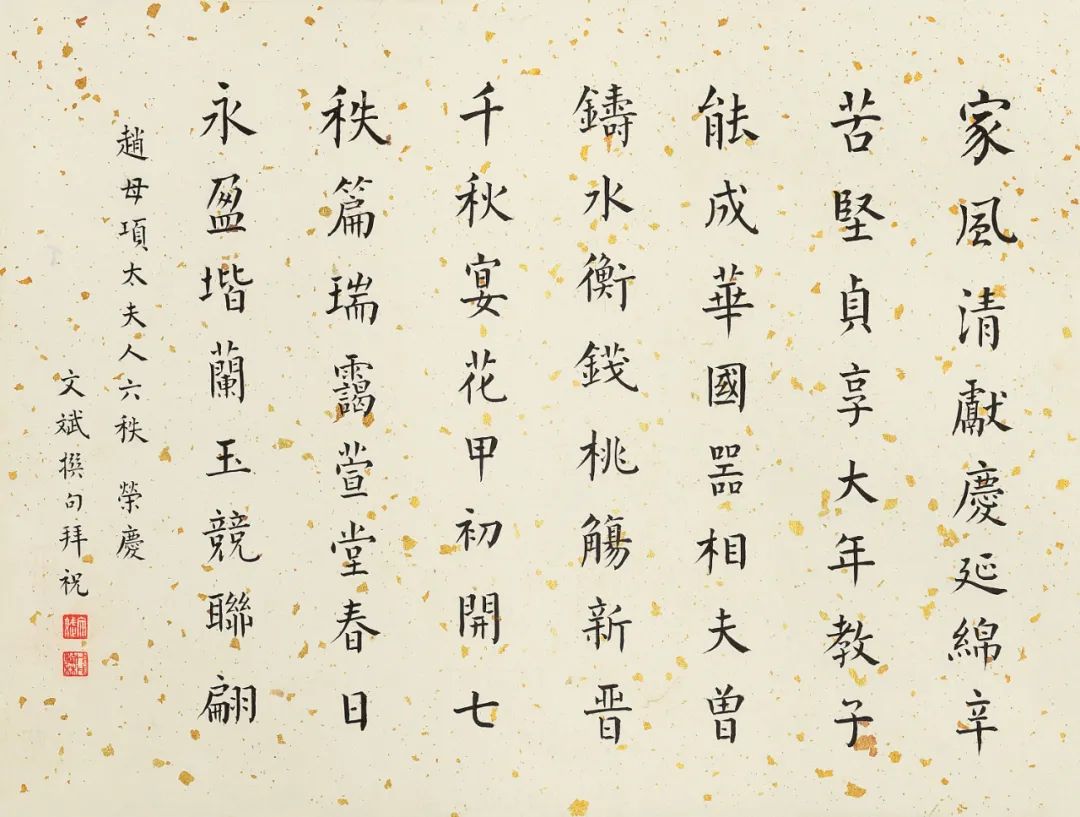 家風清獻慶延綿辛
苦堅貞享大年教子
能成華國器相夫曾
鑄水衡錢桃觴新晉
千秋宴花甲初開七
秩篇瑞靄萱堂春日
永盈堦蘭玉競聯翩
趙母項太夫人六秩 榮慶
文斌撰句拜祝